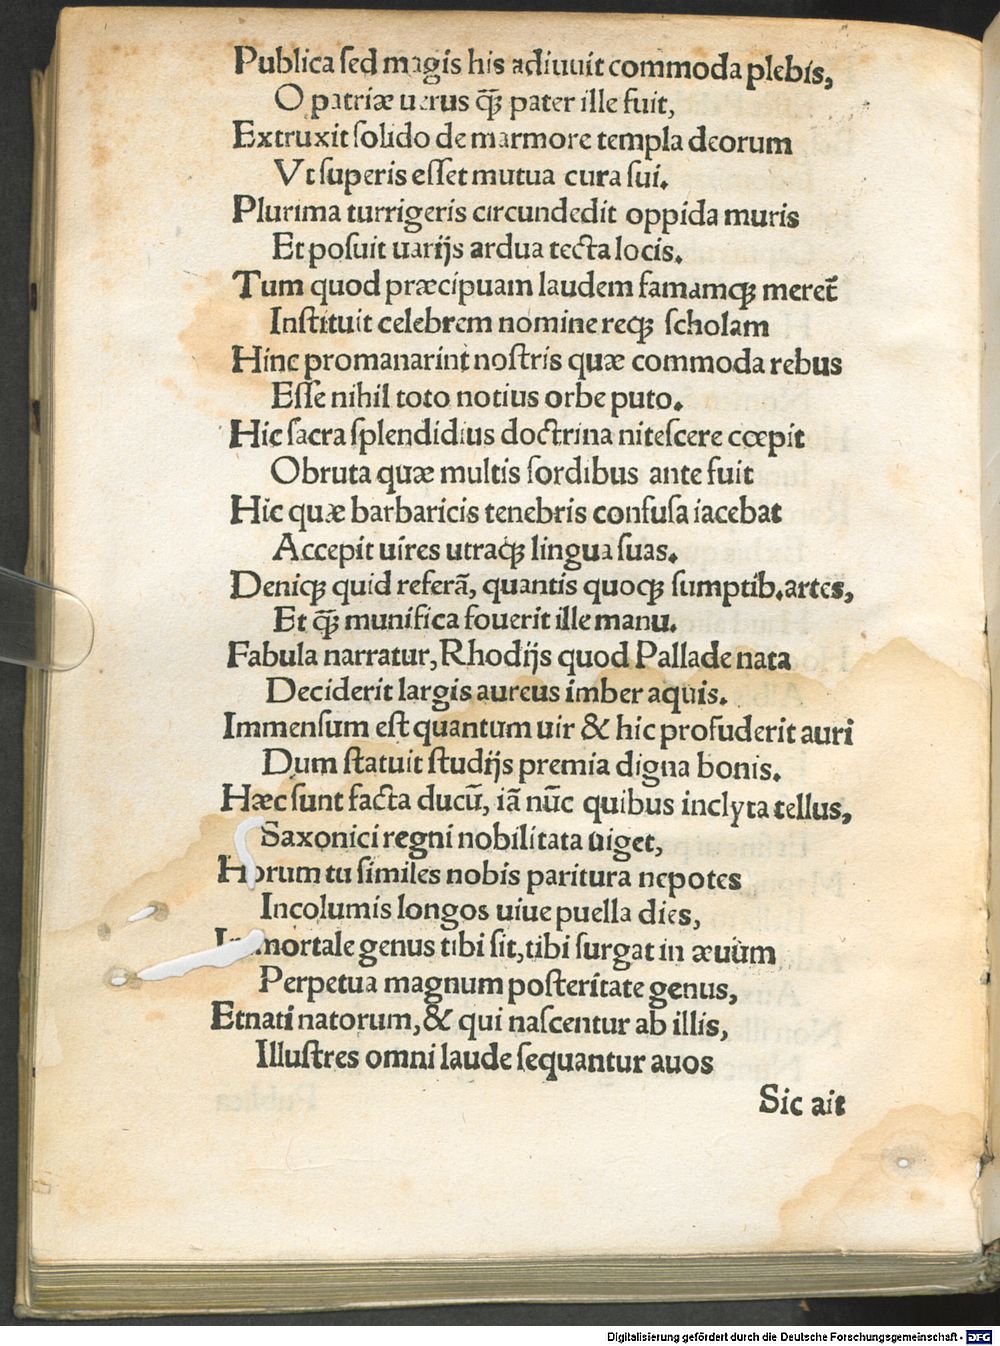 Publica ſed magis his adiuuit commoda plebis,
O patriæ uerus q̃ȝ pater ille fuit,
Extruxit ſolido de marmore templa deorum
Vt ſuperis eſſet mutua cura ſui.
Plurima turrigeris circundedit oppida muris
Et poſuit uarijs ardua tecta locis.
Tum quod præcipuam laudem famamqȝ meret̃
Inſtituit celebrem nomine reqȝ ſcholam
Hinc promanarint noſtris quæ commoda rebus
Eſſe nihil toto notius orbe puto.
Hic ſacra ſplendidius doctrina niteſcere cœpit
Obruta quæ multis ſordibus ante fuit
Hic quæ barbaricis tenebris confuſa iacebat
Accepit uires utraqȝ lingua ſuas.
Deniqȝ quid referã, quantis quoqȝ ſumptib.artes,
Et q̃ȝ munifica fouerit ille manu.
Fabula narratur, Rhodijs quod Pallade nata
Deciderit largis aureus imber aquis.
Immenſum eſt quantum uir & hic profuderit auri
Dum ſtatuit ſtudijs premia digna bonis.
Hæc ſunt facta ducũ, iã nũc quibus inclyta tellus,
Saxonici regni nobilitata uiget,
Horum tu ſimiles nobis paritura nepotes
Incolumis longos uiue puella dies,
Immortale genus tibi ſit, tibi ſurgat in æuum
Perpetua magnum poſteritate genus,
Et nati natorum, & qui naſcentur ab illis,
Illuſtres omni laude ſequantur auos
Sic ait
Digitalisierung gefördert durch die Deutsche Forschungsgemeinschaft - DFG